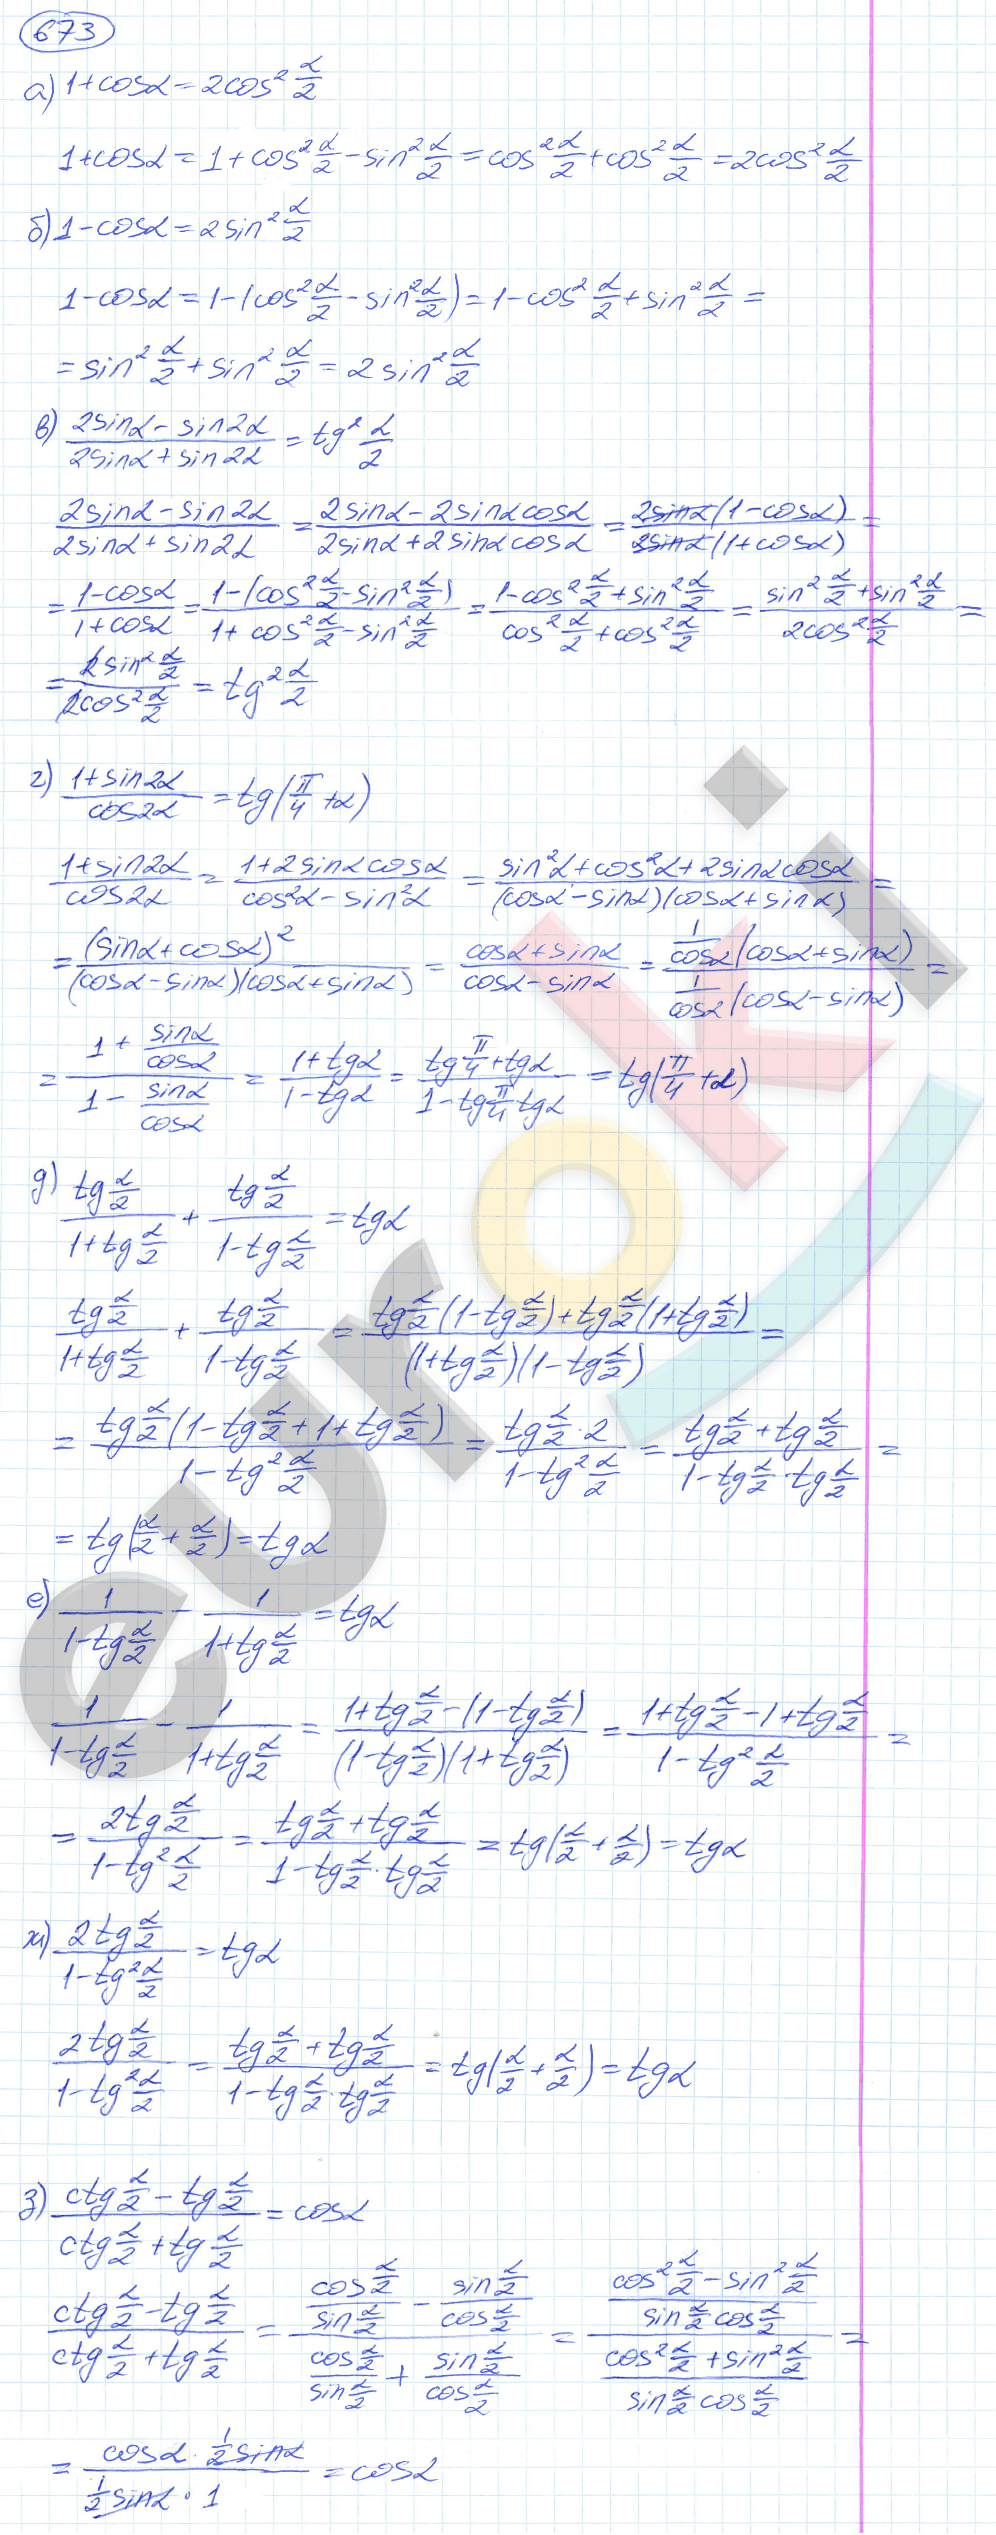 673
а) 1+cosα = 2cos² α/2
1+cosα = 1+cos² α/2 - sin² α/2 = cos² α/2 + cos² α/2 = 2cos² α/2
б) 1-cosα = 2sin² α/2
1-cosα = 1-(cos² α/2 - sin² α/2) = 1-cos² α/2 + sin² α/2 =
= sin² α/2 + sin² α/2 = 2sin² α/2
в) (2sinα - sin2α)/(2sinα + sin2α) = tg² α/2
(2sinα - sin2α)/(2sinα + sin2α) = (2sinα - 2sinαcosα)/(2sinα + 2sinαcosα) = (2sinα(1-cosα))/(2sinα(1+cosα)) =
= (1-cosα)/(1+cosα) = (1-(cos² α/2 - sin² α/2))/(1+cos² α/2 - sin² α/2) = (1-cos² α/2 + sin² α/2)/(cos² α/2 + cos² α/2) = (sin² α/2 + sin² α/2)/(2cos² α/2) =
= (2sin² α/2)/(2cos² α/2) = tg² α/2
г) (1+sin2α)/(cos2α) = tg(π/4 + α)
(1+sin2α)/(cos2α) = (1+2sinαcosα)/(cos²α - sin²α) = (sin²α + cos²α + 2sinαcosα)/((cosα - sinα)(cosα + sinα)) =
= (sinα + cosα)²/((cosα - sinα)(cosα + sinα)) = (cosα + sinα)/(cosα - sinα) = (1/cosα (cosα + sinα))/(1/cosα (cosα - sinα)) =
= (1 + sinα/cosα)/(1 - sinα/cosα) = (1+tgα)/(1-tgα) = (tg π/4 + tgα)/(1-tg π/4 tgα) = tg(π/4 + α)
д) (tg α/2)/(1+tg α/2) + (tg α/2)/(1-tg α/2) = tgα
(tg α/2)/(1+tg α/2) + (tg α/2)/(1-tg α/2) = (tg α/2 (1-tg α/2) + tg α/2 (1+tg α/2))/((1+tg α/2)(1-tg α/2)) =
= (tg α/2 (1-tg α/2 + 1+tg α/2))/(1-tg² α/2) = (tg α/2 · 2)/(1-tg² α/2) = (tg α/2 + tg α/2)/(1-tg α/2 · tg α/2) =
= tg(α/2 + α/2) = tgα
е) 1/(1-tg α/2) - 1/(1+tg α/2) = tgα
1/(1-tg α/2) - 1/(1+tg α/2) = (1+tg α/2 - (1-tg α/2))/((1-tg α/2)(1+tg α/2)) = (1+tg α/2 - 1+tg α/2)/(1-tg² α/2) =
= (2tg α/2)/(1-tg² α/2) = (tg α/2 + tg α/2)/(1-tg α/2 · tg α/2) = tg(α/2 + α/2) = tgα
ж) (2tg α/2)/(1-tg² α/2) = tgα
(2tg α/2)/(1-tg² α/2) = (tg α/2 + tg α/2)/(1-tg α/2 · tg α/2) = tg(α/2 + α/2) = tgα
з) (ctg α/2 - tg α/2)/(ctg α/2 + tg α/2) = cosα
(ctg α/2 - tg α/2)/(ctg α/2 + tg α/2) = ((cos α/2)/(sin α/2) - (sin α/2)/(cos α/2))/((cos α/2)/(sin α/2) + (sin α/2)/(cos α/2)) = ((cos² α/2 - sin² α/2)/(sin α/2 cos α/2))/((cos² α/2 + sin² α/2)/(sin α/2 cos α/2)) =
= (cosα · 1/2 sinα)/(1/2 sinα · 1) = cosα
euroki